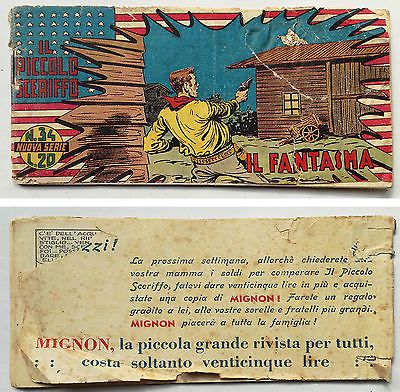 IL
PICCOLO
SCERIFFO
N. 34
NUOVA SERIE
L. 20
IL FANTASMA
C'È DELL'ACQU
VITE, NEL RIP
STIGLIO... VEN
CON ME, SC
POI. POS
DARE,
ELI
zzi!
La prossima settimana, allorchè chiederete
vostra mamma i soldi per comperare Il Piccolo
Sceriffo, fatevi dare venticinque lire in più e acqui-
state una copia di MIGNON! Farete un regalo
gradito a lei, alle vostre sorelle e fratelli più grandi.
MIGNON piacerà a tutta la famiglia!
MIGNON, la piccola grande rivista per tutti,
: : costa soltanto venticinque lire : :